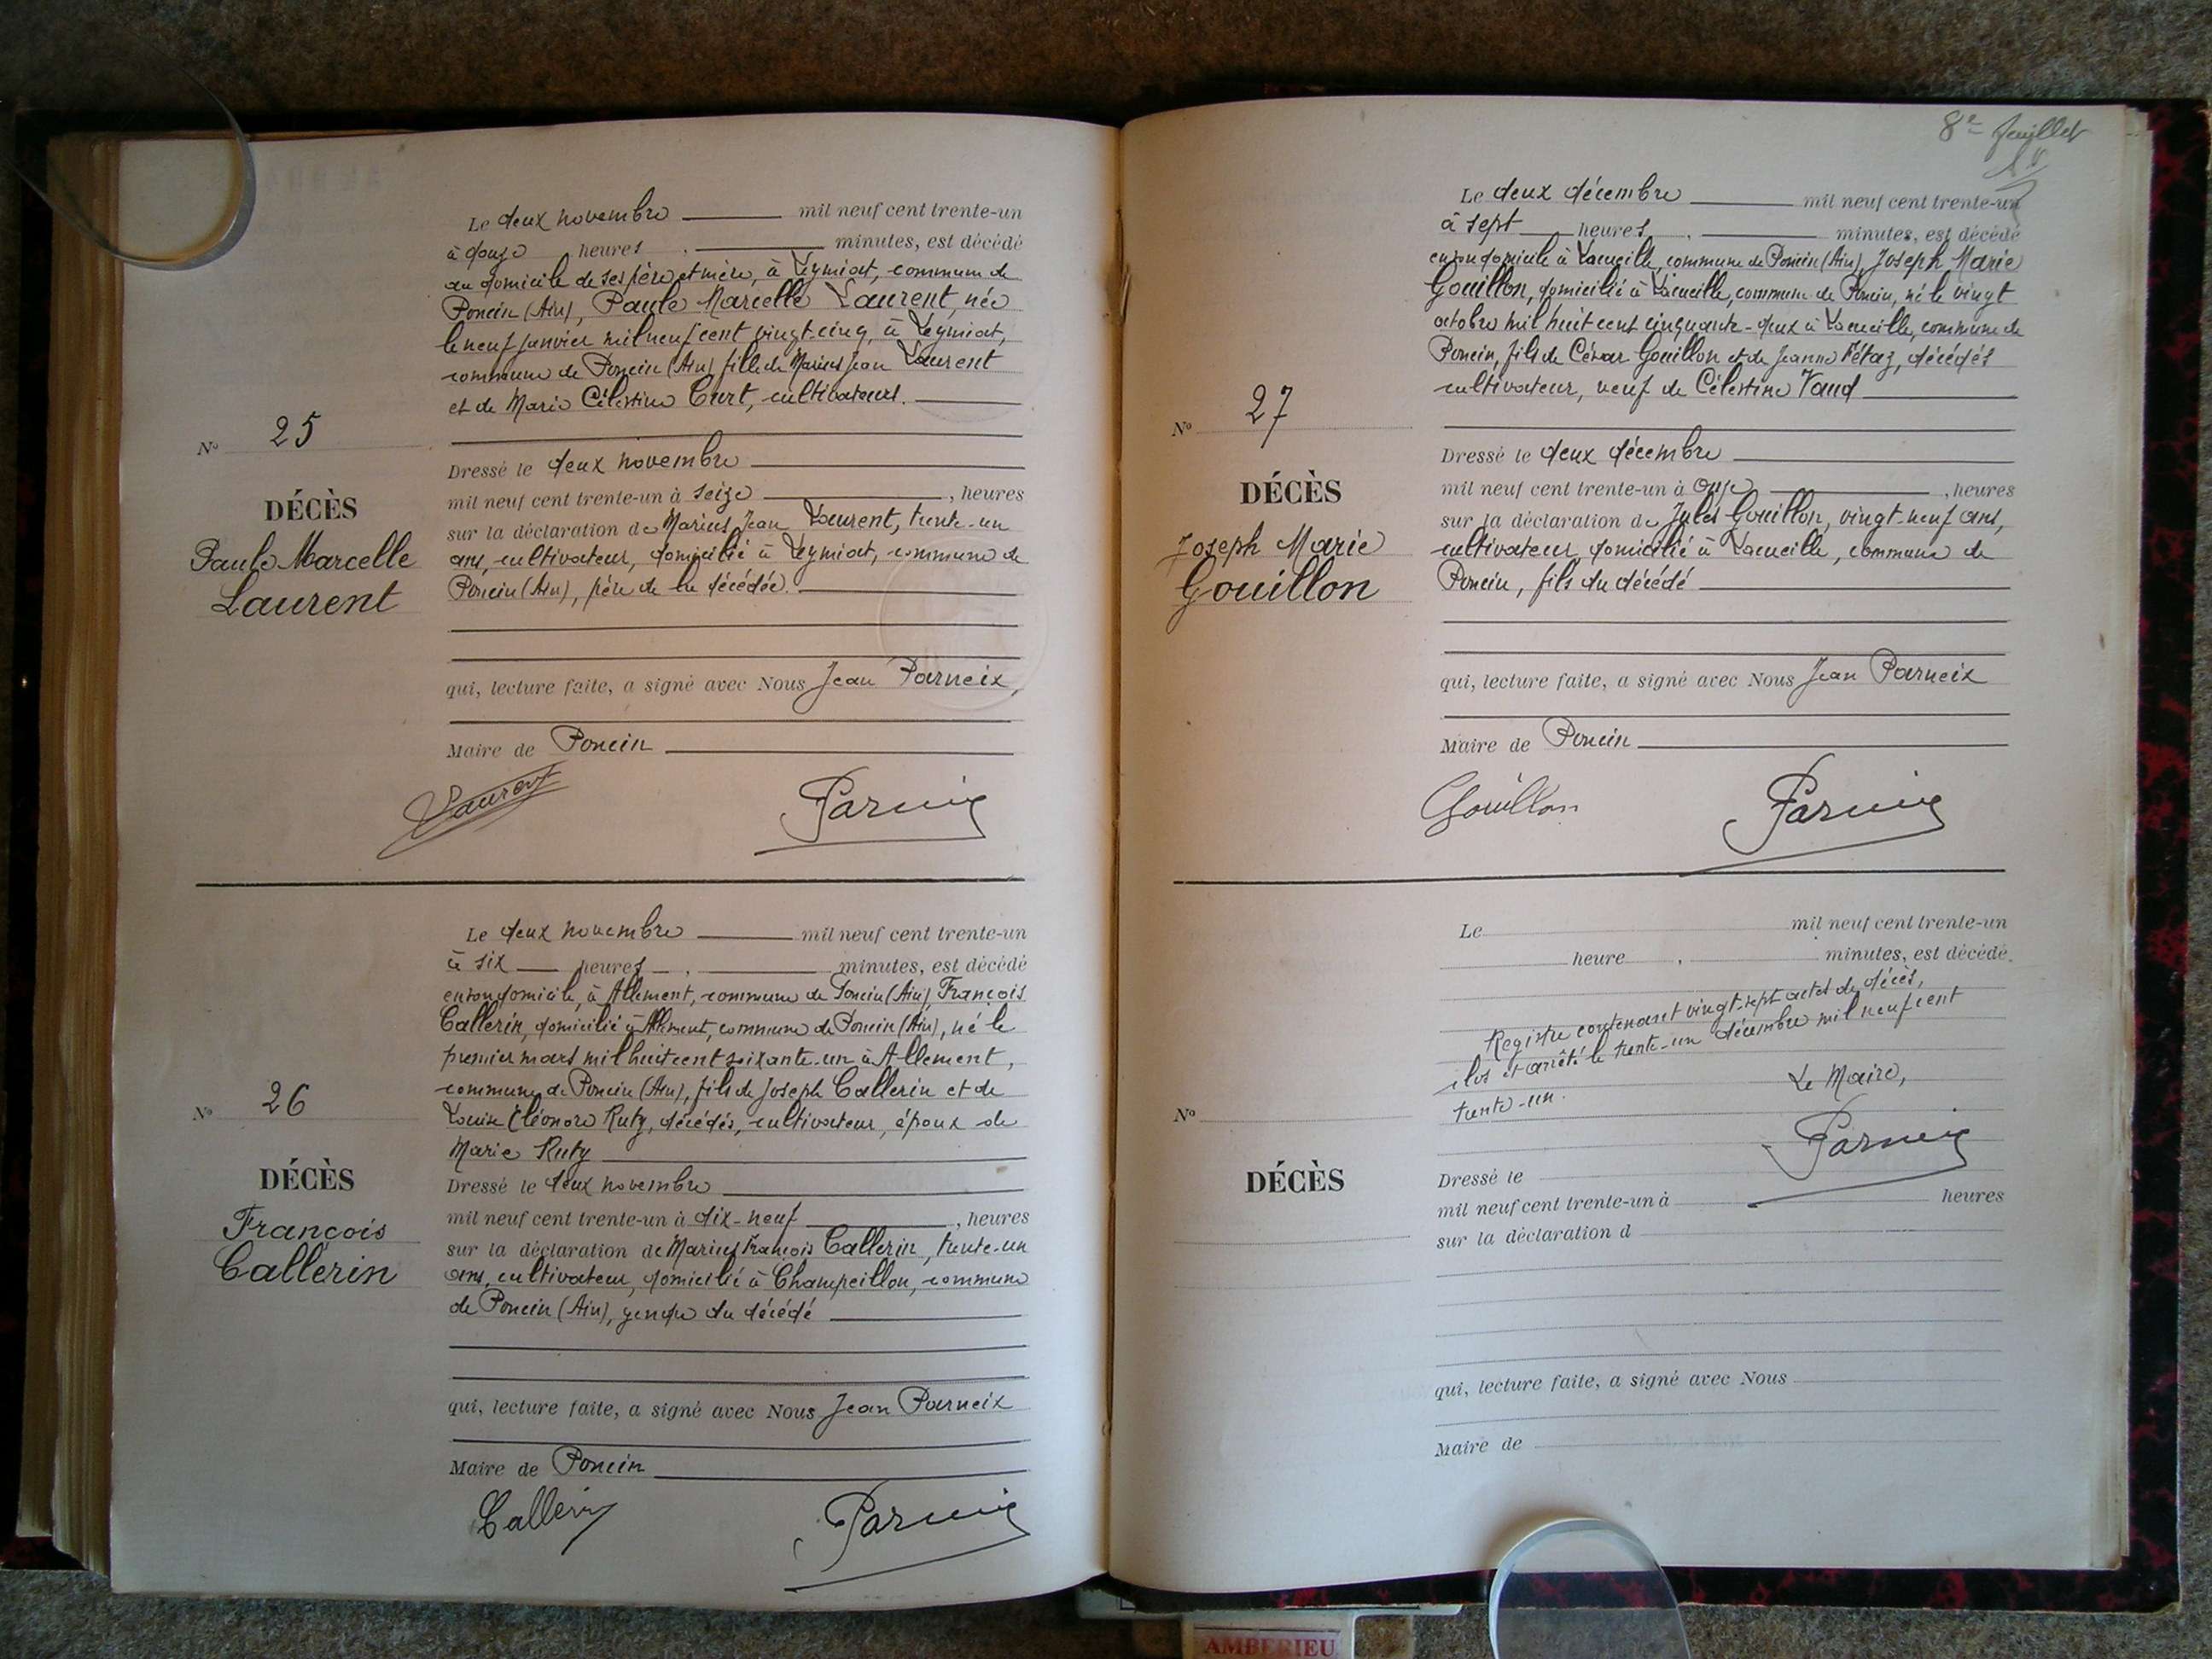 Le deux novembre mil neuf cent trente-un
à douze heures , minutes, est décédé
au domicile de ses père et mère, à Leymiat, commune de
Poncin (Ain), Paule Marcelle Laurent, née
le neuf janvier mil neuf cent vingt-cinq, à Leymiat,
commune de Poncin (Ain) fille de Marius Jean Laurent
et de Marie Célestine Curt, cultivateurs.
No 25
DÉCÈS
Paule Marcelle
Laurent
Dressé le deux novembre
mil neuf cent trente-un à seize , heures
sur la déclaration de Marius Jean Laurent, trente-un
ans, cultivateur, domicilié à Leymiat, commune de
Poncin (Ain), père de la décédée.
qui, lecture faite, a signé avec Nous Jean Parneix,
Maire de Poncin
Laurent Parneix
Le deux novembre mil neuf cent trente-un
à six heures , minutes, est décédé
en son domicile, à Allement, commune de Poncin (Ain), François
Callerin, domicilié à Allement, commune de Poncin (Ain), né le
premier mars mil huit cent soixante-un à Allement,
commune de Poncin (Ain), fils de Joseph Callerin et de
Louise Eléonore Ruty, décédés, cultivateur, époux de
Marie Ruty
No 26
DÉCÈS
François
Callerin
Dressé le deux novembre
mil neuf cent trente-un à dix-neuf , heures
sur la déclaration de Marius François Callerin, trente-un
ans, cultivateur, domicilié à Champeillon, commune
de Poncin (Ain), gendre du décédé
qui, lecture faite, a signé avec Nous Jean Parneix
Maire de Poncin
Callerin Parneix
8e feuillet
Le deux décembre mil neuf cent trente-un
à sept heures , minutes, est décédé
en son domicile à Lacueille, commune de Poncin (Ain), Joseph Marie
Gouillon, domicilié à Lacueille, commune de Poncin, né le vingt
octobre mil huit cent cinquante-deux à Lacueille, commune de
Poncin, fils de César Gouillon et de Jeanne Fétaz, décédés
cultivateur, veuf de Célestine Vaud
No 27
DÉCÈS
Joseph Marie
Gouillon
Dressé le deux décembre
mil neuf cent trente-un à onze , heures
sur la déclaration de Jules Gouillon, vingt-neuf ans,
cultivateur, domicilié à Lacueille, commune de
Poncin, fils du décédé
qui, lecture faite, a signé avec Nous Jean Parneix
Maire de Poncin
Gouillon Parneix
Le mil neuf cent trente-un
heure , minutes, est décédé
Registre contenant vingt-sept actes de décès,
clos et arrêté le trente-un décembre mil neuf cent
trente-un.
Le Maire,
Parneix
No
DÉCÈS
Dressé le
mil neuf cent trente-un à heures
sur la déclaration d
qui, lecture faite, a signé avec Nous
Maire de
AMBERIEU